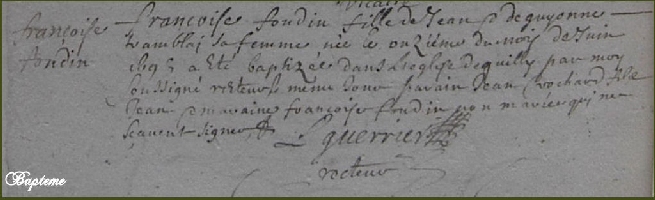 françoise
fondin
françoise fondin fille de Jean & de guyonne
tramblaj sa femme née le onziéme du mois de Juin
1695 a été baptizée dans l'eglise de quilly par moy
soussigné recteur le même jour parain Jean Brochard
Jean & maraine françoise fondin non mariée qui ne
sçavent signer
L guerrier
recteur
Bapteme